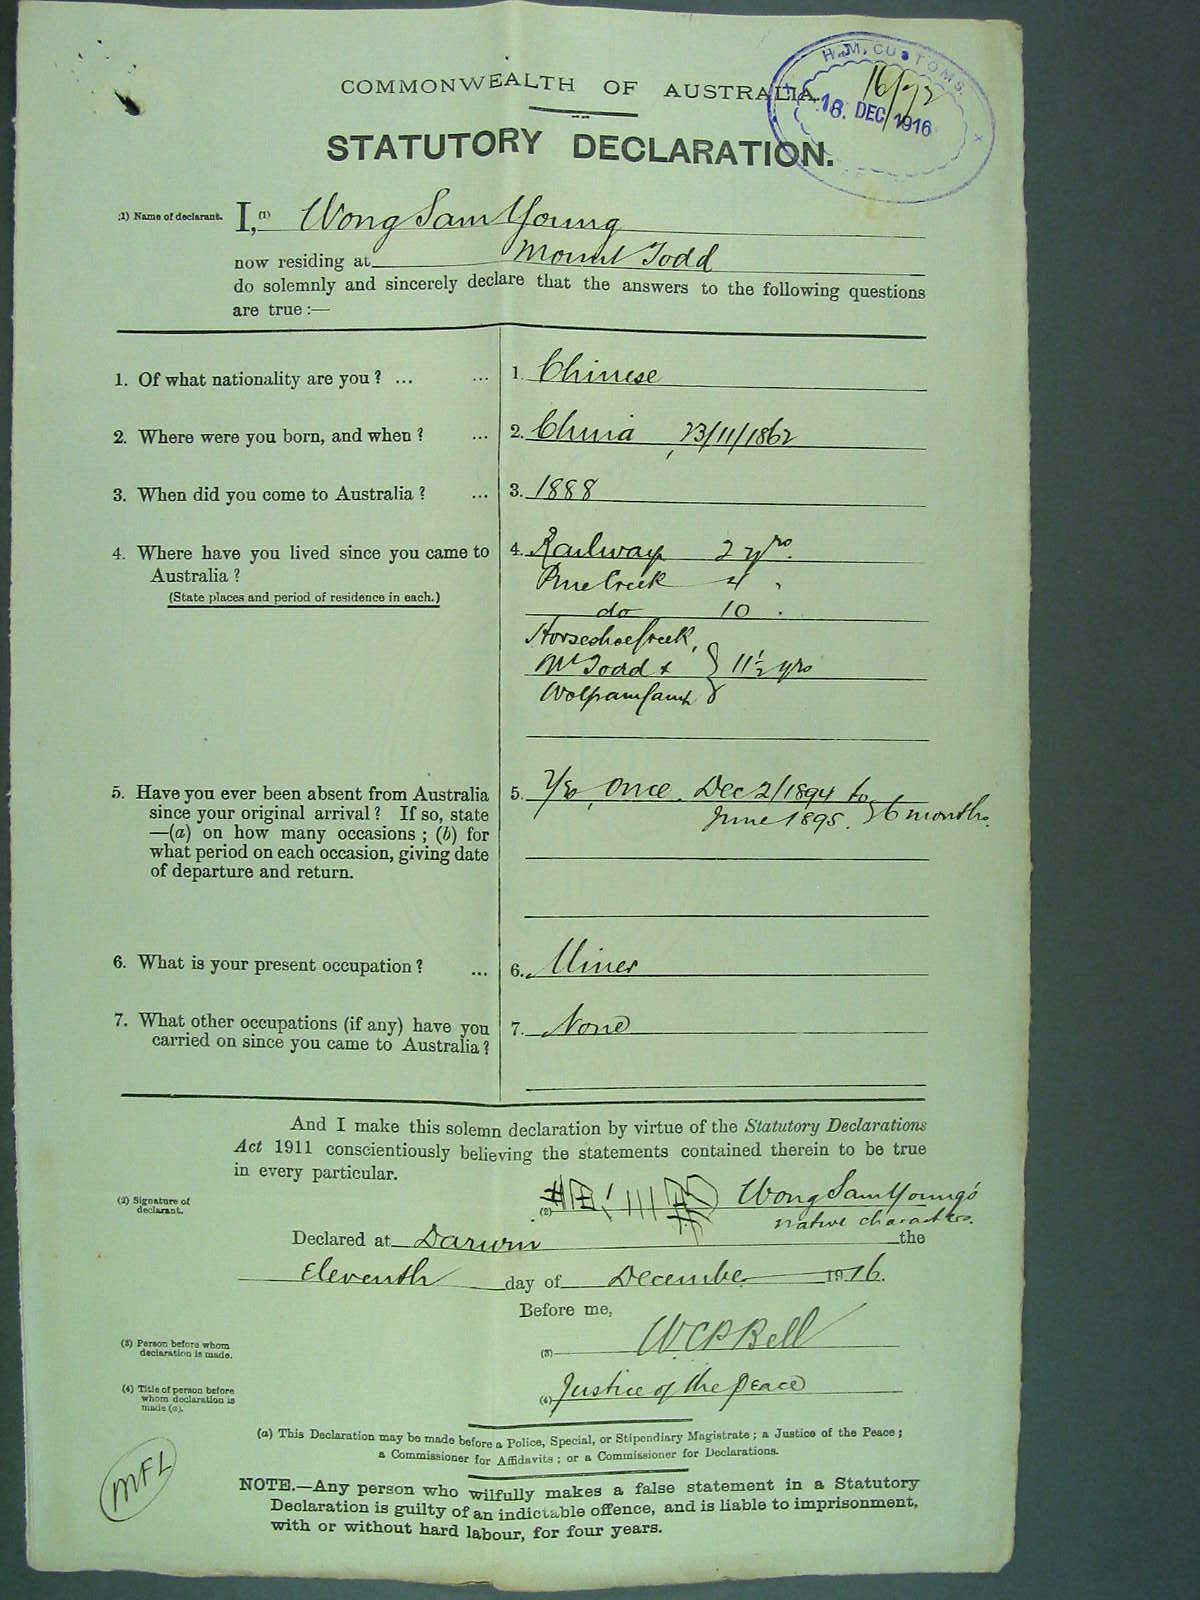 H.M. CUSTOMS.
16/92
18. DEC 1916
COMMONWEALTH OF AUSTRALIA.
STATUTORY DECLARATION.
(1) Name of declarant. I, (1) Wong Sam Young
now residing at Mount Todd
do solemnly and sincerely declare that the answers to the following questions
are true :—
1. Of what nationality are you ? ... ... 1. Chinese
2. Where were you born, and when ? ... 2. China, 23/11/1862
3. When did you come to Australia ? ... 3. 1888
4. Where have you lived since you came to 4. Railway 2 yrs.
Australia ? Pine Creek 4 "
(State places and period of residence in each.) do 10 "
Horseshoe Creek,
Mt Todd & } 11½ yrs
Wolfram Camp
5. Have you ever been absent from Australia 5. Yes, once. Dec 2/1894 to
since your original arrival ? If so, state June 1895. } 6 months.
—(a) on how many occasions ; (b) for
what period on each occasion, giving date
of departure and return.
6. What is your present occupation ? ... 6. Miner
7. What other occupations (if any) have you 7. None
carried on since you came to Australia ?
And I make this solemn declaration by virtue of the Statutory Declarations
Act 1911 conscientiously believing the statements contained therein to be true
in every particular.
(2) Signature of declarant. (2) Wong Sam Young's
native characters.
Declared at Darwin the
Eleventh day of December 1916.
Before me,
(3) Person before whom declaration is made. (3) W.C.P. Bell
(4) Title of person before whom declaration is made (a). (4) Justice of the Peace
(a) This Declaration may be made before a Police, Special, or Stipendiary Magistrate ; a Justice of the Peace ;
a Commissioner for Affidavits ; or a Commissioner for Declarations.
MFL
NOTE.—Any person who wilfully makes a false statement in a Statutory
Declaration is guilty of an indictable offence, and is liable to imprisonment,
with or without hard labour, for four years.